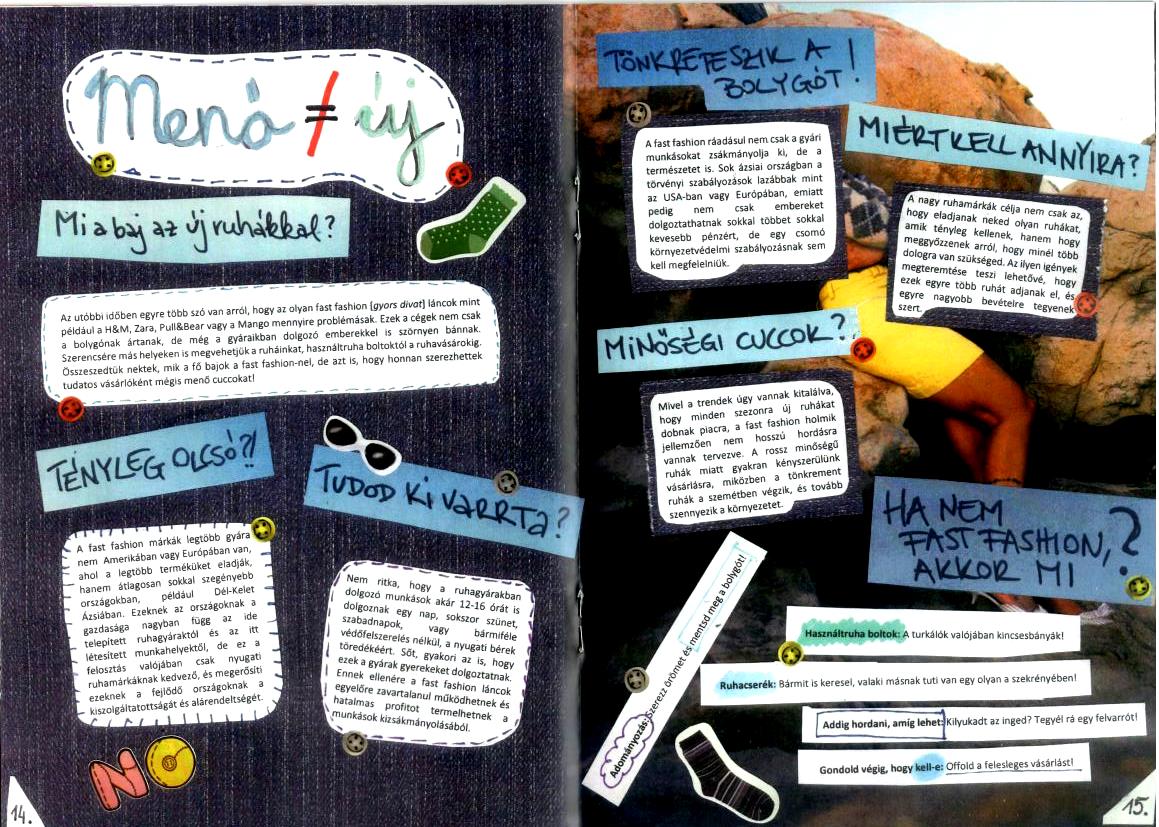 Menő ≠ új
Mi a baj az új ruhákkal?
Az utóbbi időben egyre több szó van arról, hogy az olyan fast fashion [gyors divat] láncok mint
például a H&M, Zara, Pull&Bear vagy a Mango mennyire problémásak. Ezek a cégek nem csak
a bolygónak ártanak, de még a gyáraikban dolgozó emberekkel is szörnyen bánnak.
Szerencsére más helyeken is megvehetjük a ruháinkat, használtruha boltoktól a ruhavásárokig.
Összeszedtük nektek, mik a fő bajok a fast fashion-nel, de azt is, hogy honnan szerezhettek
tudatos vásárlóként mégis menő cuccokat!
TÉNYLEG OLCSÓ?!
A fast fashion márkák legtöbb gyára
nem Amerikában vagy Európában van,
ahol a legtöbb terméküket eladják,
hanem átlagosan sokkal szegényebb
országokban, például Dél-Kelet
Ázsiában. Ezeknek az országoknak a
gazdasága nagyban függ az ide
telepített ruhagyáraktól és az itt
létesített munkahelyektől, de ez a
felosztás valójában csak nyugati
ruhamárkáknak kedvező, és megerősíti
ezeknek a fejlődő országoknak a
kiszolgáltatottságát és alárendeltségét.
TUDOD KI VARRTA?
Nem ritka, hogy a ruhagyárakban
dolgozó munkások akár 12-16 órát is
dolgoznak egy nap, sokszor szünet,
szabadnapok, vagy bármiféle
védőfelszerelés nélkül, a nyugati bérek
töredékéért. Sőt, gyakori az is, hogy
ezek a gyárak gyerekeket dolgoztatnak.
Ennek ellenére a fast fashion láncok
egyelőre zavartalanul működhetnek és
hatalmas profitot termelhetnek a
munkások kizsákmányolásából.
NO
14.
TÖNKRETESZIK A
BOLYGÓT!
A fast fashion ráadásul nem csak a gyári
munkásokat zsákmányolja ki, de a
természetet is. Sok ázsiai országban a
törvényi szabályozások lazábbak mint
az USA-ban vagy Európában, emiatt
pedig nem csak embereket
dolgoztathatnak sokkal többet sokkal
kevesebb pénzért, de egy csomó
környezetvédelmi szabályozásnak sem
kell megfelelniük.
MIÉRT KELL ANNYIRA?
A nagy ruhamárkák célja nem csak az,
hogy eladjanak neked olyan ruhákat,
amik tényleg kellenek, hanem hogy
meggyőzzenek arról, hogy minél több
dologra van szükséged. Az ilyen igények
megteremtése teszi lehetővé, hogy
ezek egyre több ruhát adjanak el, és
egyre nagyobb bevételre tegyenek
szert.
MINŐSÉGI CUCCOK?
Mivel a trendek úgy vannak kitalálva,
hogy minden szezonra új ruhákat
dobnak piacra, a fast fashion holmik
jellemzően nem hosszú hordásra
vannak tervezve. A rossz minőségű
ruhák miatt gyakran kényszerülünk
vásárlásra, miközben a tönkrement
ruhák a szemétben végzik, és tovább
szennyezik a környezetet.
HA NEM
FAST FASHION,
AKKOR MI?
Adományozás: Szerezz örömet és mentsd meg a bolygót!
Használtruha boltok: A turkálók valójában kincsesbányák!
Ruhacserék: Bármit is keresel, valaki másnak tuti van egy olyan a szekrényében!
Addig hordani, amíg lehet: Kilyukadt az inged? Tegyél rá egy felvarrót!
Gondold végig, hogy kell-e: Offold a felesleges vásárlást!
15.